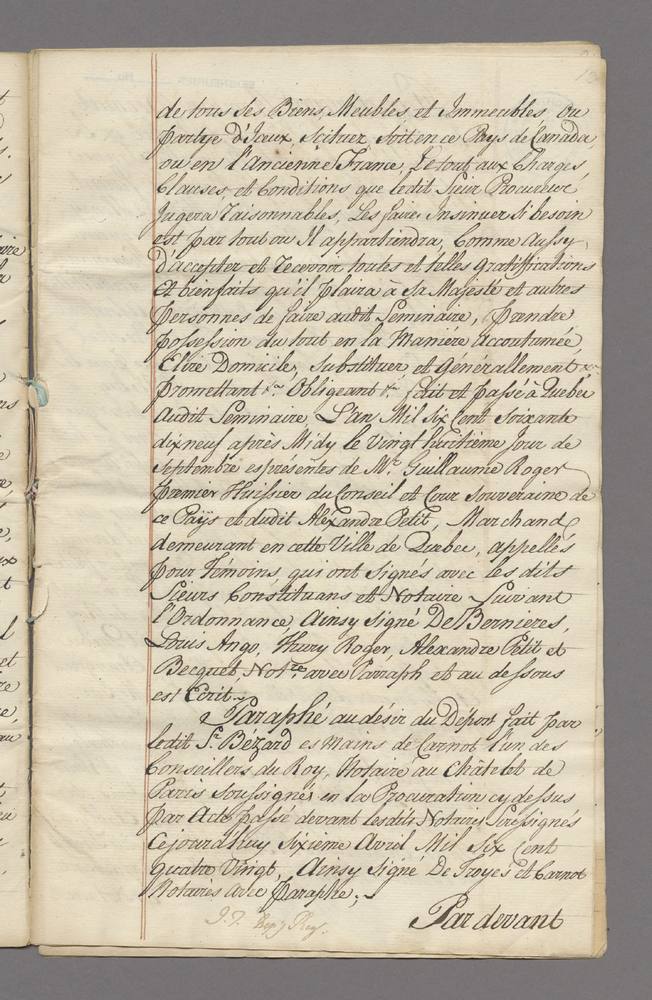 de tous ses Biens, Meubles, et Immeubles, ou
partye d'Iceux, Scituez, Soit en ce Pays de Canada,
ou en l'Ancienne France, Le tout aux Charges,
Clauses, et Conditions que ledit Sieur Procureur
Jugera Raisonnables, Les faire Insinuer Si besoin
est par tout ou Il appartiendra, Comme Aussy,
D'accepter et Recevoir toutes et telles gratiffications
Et bienfaits qu'il plaira à Sa Majesté et autres
personnes de faire audit Seminaire, prendre
possession du tout en la Maniére accoutumée,
Elire Domicile, Substituer, et Générallement &ca
promettant &ca Obligeant &ca fait et passé à Quebec
audit Seminaire, L'an Mil Six Cent Soixante
dix neuf après Midy le Vingt huitiéme Jour de
Septembre es présentes de Me. Guillaume Roger
premier Huissier du Conseil et Cour Souveraine de
ce Païs et dudit Aléxandre Petit, Marchand
demeurant en cette Ville de Quebec, appellés
pour Témoins, qui ont Signés avec les dits
Sieurs Constituans et Notaire Suivant
l'Ordonnance, Ainsy Signé De Bernieres,
Louis Ango, Thury Roger, Alexandre Petit et
Becquet Notre avec Parraph et au dessous
est Ecrit.
Paraphé au désir du Dépost fait par
ledit Sr. Bézard es mains de Carnot l'un des
Conseillers du Roy, Notaire au Châtelet de
Paris Soussigné en la Procuration cy dessus
par Acte passé devant lesdits Notaires Soussignés
Cejourdhuy Sixieme Avril Mil Six Cent
quatre Vingt, Ainsy Signé De Troyes et Carnot
Notaires avec Paraphe,
Par devant